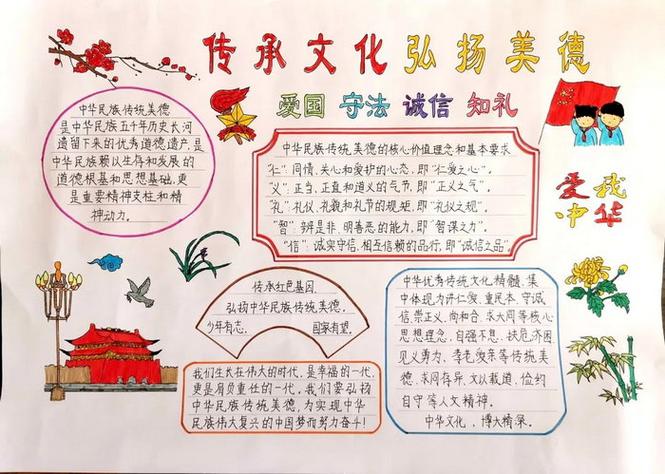 传承文化弘扬美德
爱国 守法 诚信 知礼
中华民族传统美德
是中华民族五千年历史长河
遗留下来的优秀道德遗产,是
中华民族赖以生存和发展的
道德根基和思想基础,更
是重要精神支柱和精
神动力。
中华民族传统美德的核心价值理念和基本要求
"仁":同情、关心和爱护的心态,即"仁爱之心"。
"义":正当、正直和道义的气节,即"正义之气"
"礼":礼仪、礼貌和礼节的规矩,即"礼仪之规"。
"智":辨是非、明善恶的能力,即"智谋之力"。
"信":诚实守信、相互信赖的品行,即"诚信之品"。
爱我
中华
传承红色基因
弘扬中华民族传统美德。
少年有志, 国家有望。
我们生长在伟大的时代,是幸福的一代,
更是肩负重任的一代。我们要弘扬
中华民族传统美德,为实现中华
民族伟大复兴的中国梦而努力奋斗!
中华优秀传统文化精髓,集
中体现为讲仁爱、重民本、守诚
信、崇正义、尚和合、求大同等核心
思想理念,自强不息、扶危济困、
见义勇为、孝老爱亲等传统美
德、求同存异、文以载道、俭约
自守等人文精神。
中华文化,博大精深。